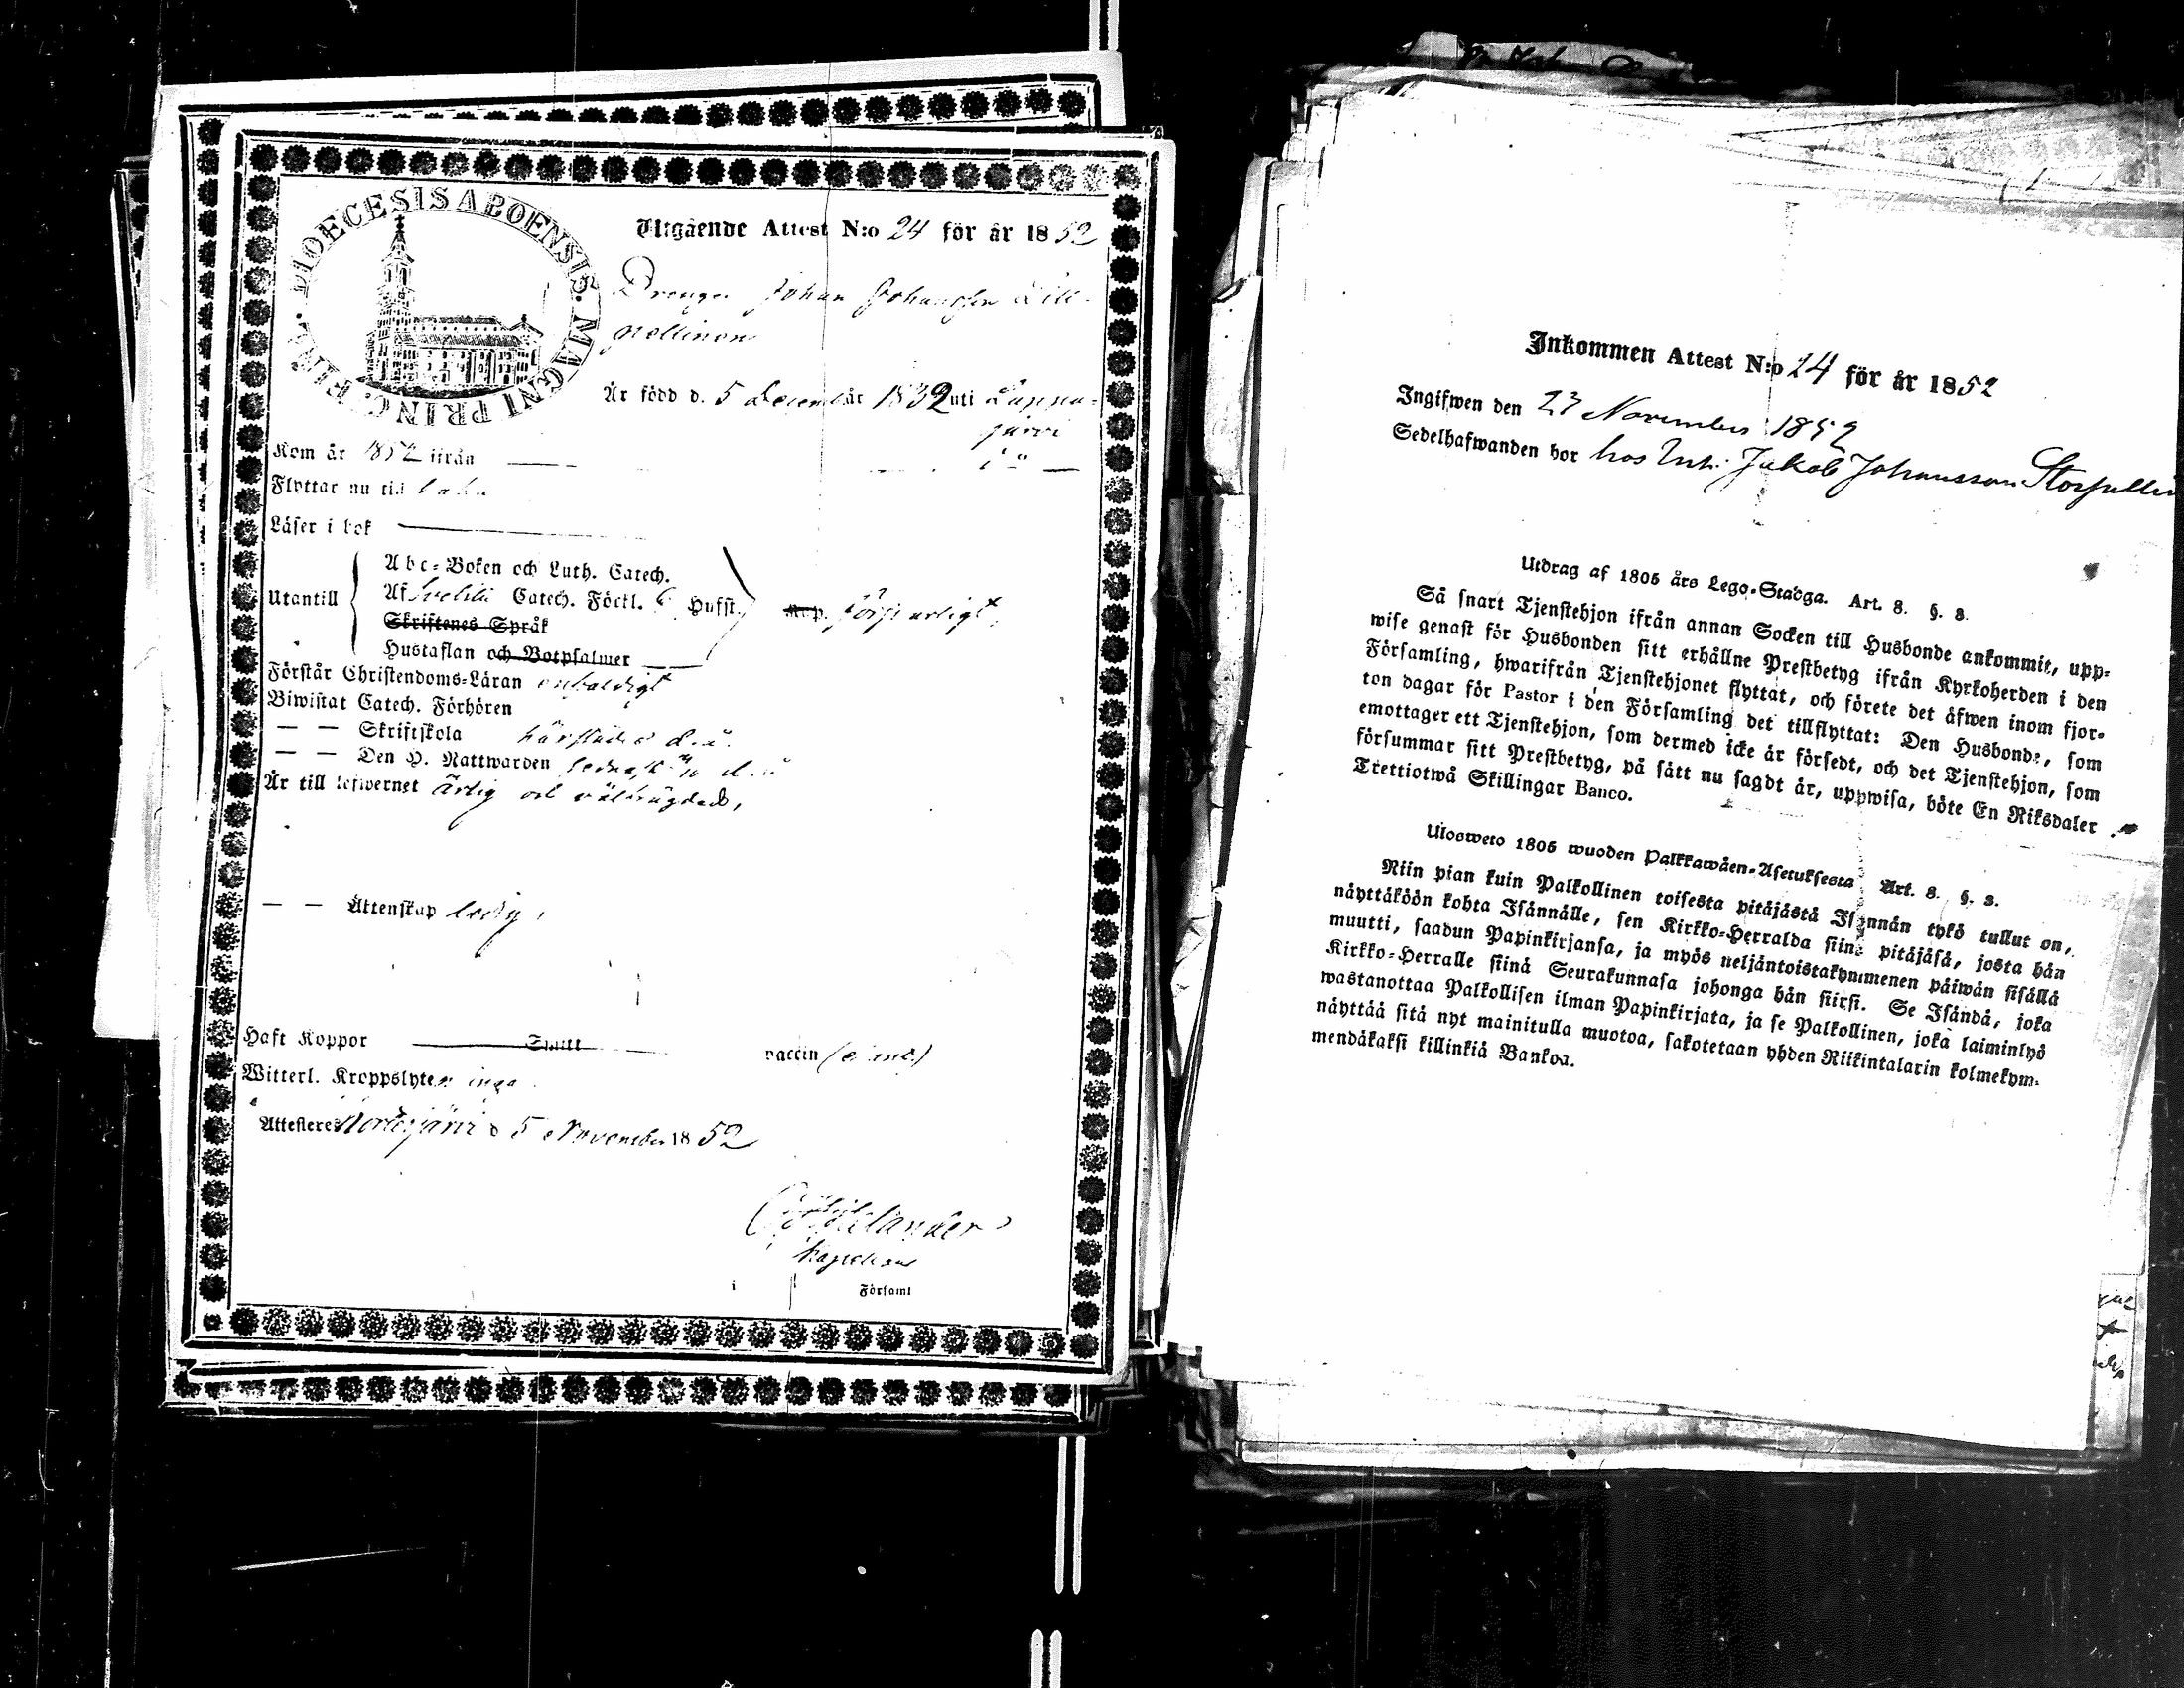 DIOECESIS ABOENSIS. MAGNI PRINC. FINL.
Utgående Attest N:o 24 för år 1852
Drengen Johan Johansson Lill-
Är född d. 5 Decemb år 1832 uti Lappa-
järvi
Kom år 1852 ifrån
Flyttar nu till
Läser i bok
Utantill
Abc-Boken och Luth. Catech.
Af Svebilii Catech. Förkl. Hufst.
försvarligt,
Skriftenes Språk
Hustaflan och Botpsalmer
Förstår Christendoms-Läran enfaldigt
Biwistat Catech. Förhören
— — Skriftskola härstädes d. å.
— — Den H. Nattwarden sednast d. å
Är till lefwernet ärlig och välfrägdad,
— — Äktenskap ledig,
Haft Koppor vaccin
Witterl. Kroppslyten inga
Attesteres Kortesjärvi d 5 November 1852
Kapellans
i Församl
Inkommen Attest N:o 24 för år 1852
Ingifwen den 27 November 1852
Sedelhafwanden bor hos Inh. Jakob Johansson
Utdrag af 1805 års Lego-Stadga. Art. 8. §. 3.
Så snart Tjenstehjon ifrån annan Socken till Husbonde ankommit, upp-
wise genast för Husbonden sitt erhållne Prestbetyg ifrån Kyrkoherden i den
Församling, hwarifrån Tjenstehjonet flyttat, och förete det äfwen inom fjor-
ton dagar för Pastor i den Församling det tillflyttat: Den Husbonde, som
emottager ett Tjenstehjon, som dermed icke är försedt, och det Tjenstehjon, som
försummar sitt Prestbetyg, på sätt nu sagdt är, uppwisa, böte En Riksdaler
Trettiotwå Skillingar Banco.
Ulosweto 1805 wuoden Palkkawäen-Asetuksesta Art. 8. §. 3.
Niin pian kuin Palkollinen toisesta pitäjästä Isännän tykö tullut on,
näyttäköön kohta Isännälle, sen Kirkko-Herralda siinä pitäjäsä, josta hän
muutti, saadun Papinkirjansa, ja myös neljäntoistakymmenen päiwän sisällä
Kirkko-Herralle siinä Seurakunnasa johonga hän siirsi. Se Isändä, joka
wastanottaa Palkollisen ilman Papinkirjata, ja se Palkollinen, joka laiminlyö
näyttää sitä nyt mainitulla muotoa, sakotetaan yhden Riikintalarin kolmekym-
mendäkaksi killinkiä Bankoa.